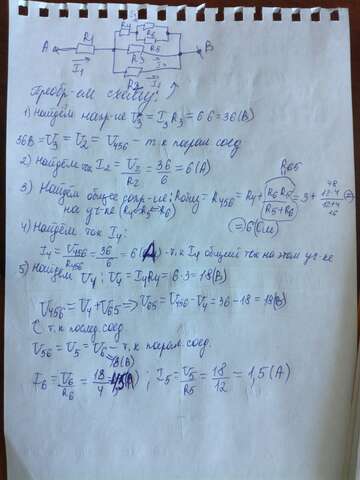 R5
R4 R6
A R1 R3 B
I1 I3
R2
Преобр-ем схему:
1) найдём напр-ие U3 = I3 R3 = 6·6 = 36 (В)
36В = U3 = U2 = U456 - т.к парал. соед
2) Найдём ток I2 = U2/R2 = 36/6 = 6 (А)
R65
3) Найдём общее сопр-ие: Rобщ = R456 = R4 + R6R5/(R5+R6) = 3 + 12·4/(12+4)
48
16
на уч-ке (R4-R5-R6) = 6 (Ом)
4) Найдём ток I4:
I4 = U456/R456 = 36/6 = 6 (А) - т.к I4 общий ток на этом уч-ке
5) Найдём U4: U4 = I4R4 = 6·3 = 18 (В)
U456 = U4 + U65 => U65 = U456 - U4 = 36 - 18 = 18 (В)
т.к послед. соед.
U56 = U5 = U6 - т.к парал. соед.
18(В)
I6 = U6/R6 = 18/4 = 4,5 (А) ; I5 = U5/R5 = 18/12 = 1,5 (А)